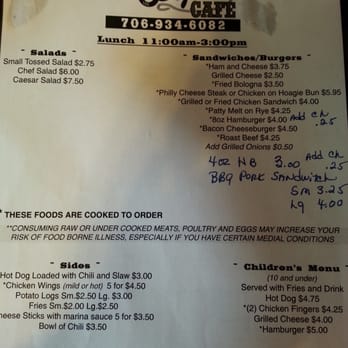 CAFÉ
706-934-6082
Lunch 11:00am-3:00pm
~ Salads ~
Small Tossed Salad $2.75
Chef Salad $6.00
Caesar Salad $7.50
~ Sandwiches/Burgers ~
*Ham and Cheese $3.75
Grilled Cheese $2.50
*Fried Bologna $3.50
*Philly Cheese Steak or Chicken on Hoagie Bun $5.95
*Grilled or Fried Chicken Sandwich $4.00
*Patty Melt on Rye $4.25
*8oz Hamburger $4.00 Add Ch .25
*Bacon Cheeseburger $4.50
*Roast Beef $4.25
Add Grilled Onions $0.50
4oz HB 3.00 Add Ch .25
BBQ Pork Sandwich
Sm 3.25
Lg 4.00
* THESE FOODS ARE COOKED TO ORDER
**CONSUMING RAW OR UNDER COOKED MEATS, POULTRY AND EGGS MAY INCREASE YOUR
RISK OF FOOD BORNE ILLNESS, ESPECIALLY IF YOU HAVE CERTAIN MEDIAL CONDITIONS
~ Sides ~
Hot Dog Loaded with Chili and Slaw $3.00
*Chicken Wings (mild or hot) 5 for $4.50
Potato Logs Sm.$2.50 Lg. $3.00
Fries Sm.$2.00 Lg.$2.50
heese Sticks with marina sauce 5 for $3.50
Bowl of Chili $3.50
~ Children's Menu ~
(10 and under)
Served with Fries and Drink
Hot Dog $4.75
*(2) Chicken Fingers $4.25
Grilled Cheese $4.00
*Hamburger $5.00